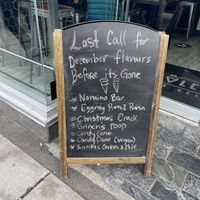 Last Call for
December flavours
Before its Gone
* Nanaimo Bar
* Eggnog Rum & Raisin
* Christmas Crack
* Grinchs Poop
* Candy Cane
* Candy Cane (vegan)
* Santas Cookies & Milk